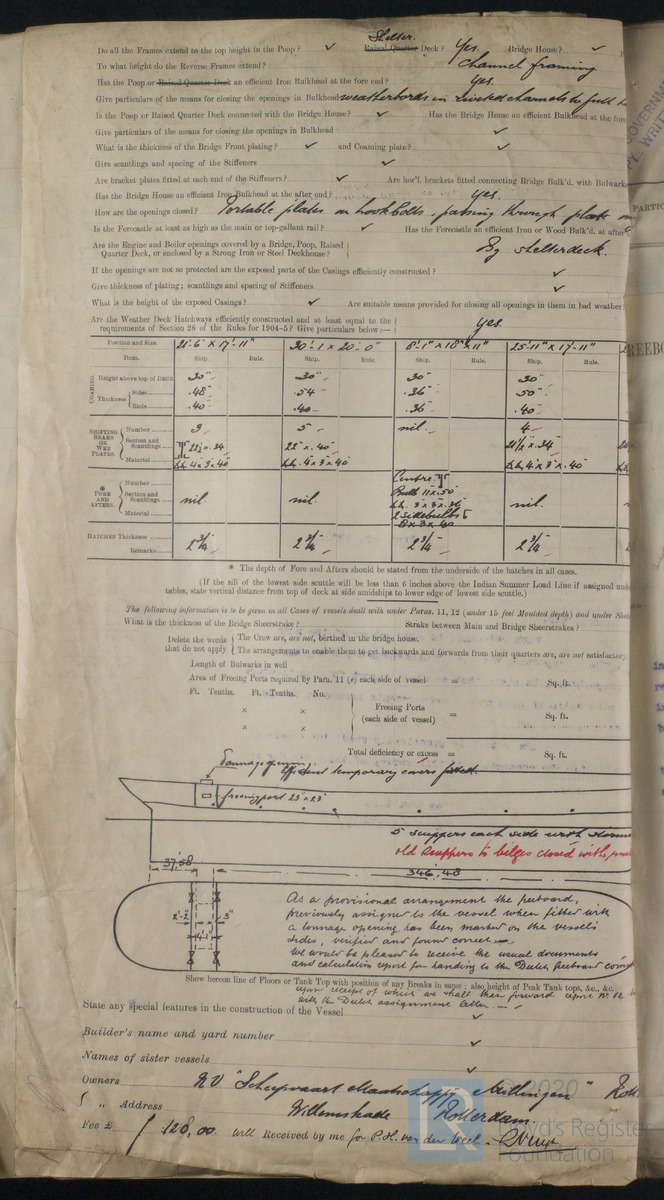 Shelter
Do all the Frames extend to the top height in the Poop? ✓ Raised Quarter Deck? Yes Bridge House? ✓
To what height do the Reverse Frames extend? Channel framing
Has the Poop or Raised Quarter Deck an efficient Iron Bulkhead at the fore end? yes.
Give particulars of the means for closing the openings in Bulkhead weatherbords in riveted channels to full
Is the Poop or Raised Quarter Deck connected with the Bridge House? ✓ Has the Bridge House an efficient Bulkhead at the fore
Give particulars of the means for closing the openings in Bulkhead ✓
What is the thickness of the Bridge Front plating? ✓ and Coaming plate? ✓
Give scantlings and spacing of the Stiffeners ✓
Are bracket plates fitted at each end of the Stiffeners? ✓ Are hor'l. brackets fitted connecting Bridge Bulk'd. with Bulwark
Has the Bridge House an efficient Iron Bulkhead at the after end? yes.
How are the openings closed? Portable plates on hookbolts, passing through plate
Is the Forecastle at least as high as the main or top-gallant rail? ✓ Has the Forecastle an efficient Iron or Wood Bulk'd. at after
Are the Engine and Boiler openings covered by a Bridge, Poop, Raised
Quarter Deck, or enclosed by a Strong Iron or Steel Deckhouse? By shelterdeck.
If the openings are not so protected are the exposed parts of the Casings efficiently constructed? ✓
Give thickness of plating; scantlings and spacing of Stiffeners ✓
What is the height of the exposed Casings? ✓ Are suitable means provided for closing all openings in them in bad weather
Are the Weather Deck Hatchways efficiently constructed and at least equal to the
requirements of Section 28 of the Rules for 1904-5? Give particulars below:— yes.
Position and Size. 21'-6" x 17'-11" 30'-1 x 20'-0" 8'-1" x 18' x 11" 25'-11" x 17'-11"
Item. Ship. Rule. Ship. Rule. Ship. Rule. Ship. Rule.
COAMING.
Height above top of DECK 30" 30" 30" 30"
Thickness Sides .48 .54 .36 .50
Ends .40 .40 .36 .40
SHIFTING BEAMS OR WEB PLATES.
Number 3 5 nil. 4
Section and Scantlings 22 x .34 22" x .40 21½ x .34
Material 4 x 3 x 40 4 x 3 x 40 4 x 3 x .40
* FORE AND AFTERS.
Number Centre
Section and Scantlings nil. nil. Bulb 11 x .50 nil.
3 x 3 x .36
Material 2 sidebulbs
8 x 3 x 40
HATCHES Thickness 2¾" 2¾" 2¾" 2¾"
Remarks
* The depth of Fore and Afters should be stated from the underside of the hatches in all cases.
(If the sill of the lowest side scuttle will be less than 6 inches above the Indian Summer Load Line if assigned
tables, state vertical distance from top of deck at side amidships to lower edge of lowest side scuttle.)
The following information is to be given in all Cases of vessels dealt with under Paras. 11, 12 (under 15 feet Moulded depth) and under
What is the thickness of the Bridge Sheerstrake? Strake between Main and Bridge Sheerstrakes?
Delete the words The Crew are, are not, berthed in the bridge house.
that do not apply The arrangements to enable them to get backwards and forwards from their quarters are, are not satisfactory.
Length of Bulwarks in well
Area of Freeing Ports required by Para. 11 (e) each side of vessel = Sq. ft.
Ft. Tenths. Ft. Tenths. No.
× × Freeing Ports
× × (each side of vessel) = Sq. ft.
Total deficiency or excess = Sq. ft.
Tonnage opening.
Efficient temporary covers fitted.
freeingport 23" x 23"
5 scuppers each side with
old scuppers to bilges closed with,
37,58
346,48
2'-2" 3"
4'-1"
As a provisional arrangement the freeboard,
previously assigned to the vessel when fitted with
a tonnage opening has been marked on the vessel's
sides, verified and found correct.
We would be pleased to receive the usual documents
and calculation report for handing to the Dutch freeboard
Show hereon line of Floors or Tank Top with position of any Breaks in same; also height of Peak Tank tops, &c., &c.
upon receipt of which we shall then forward report No. 12
with the Dutch assignment letter.
State any special features in the construction of the Vessel ✓
Builder's name and yard number ✓
Names of sister vessels ✓
Owners NV "Scheepvaart Maatschappij Millingen"
„ Address Willemskade Rotterdam.
Fee £ 128,00. will Received by me for P.H. van der Weel.
© 2020
Lloyd's Register
Foundation